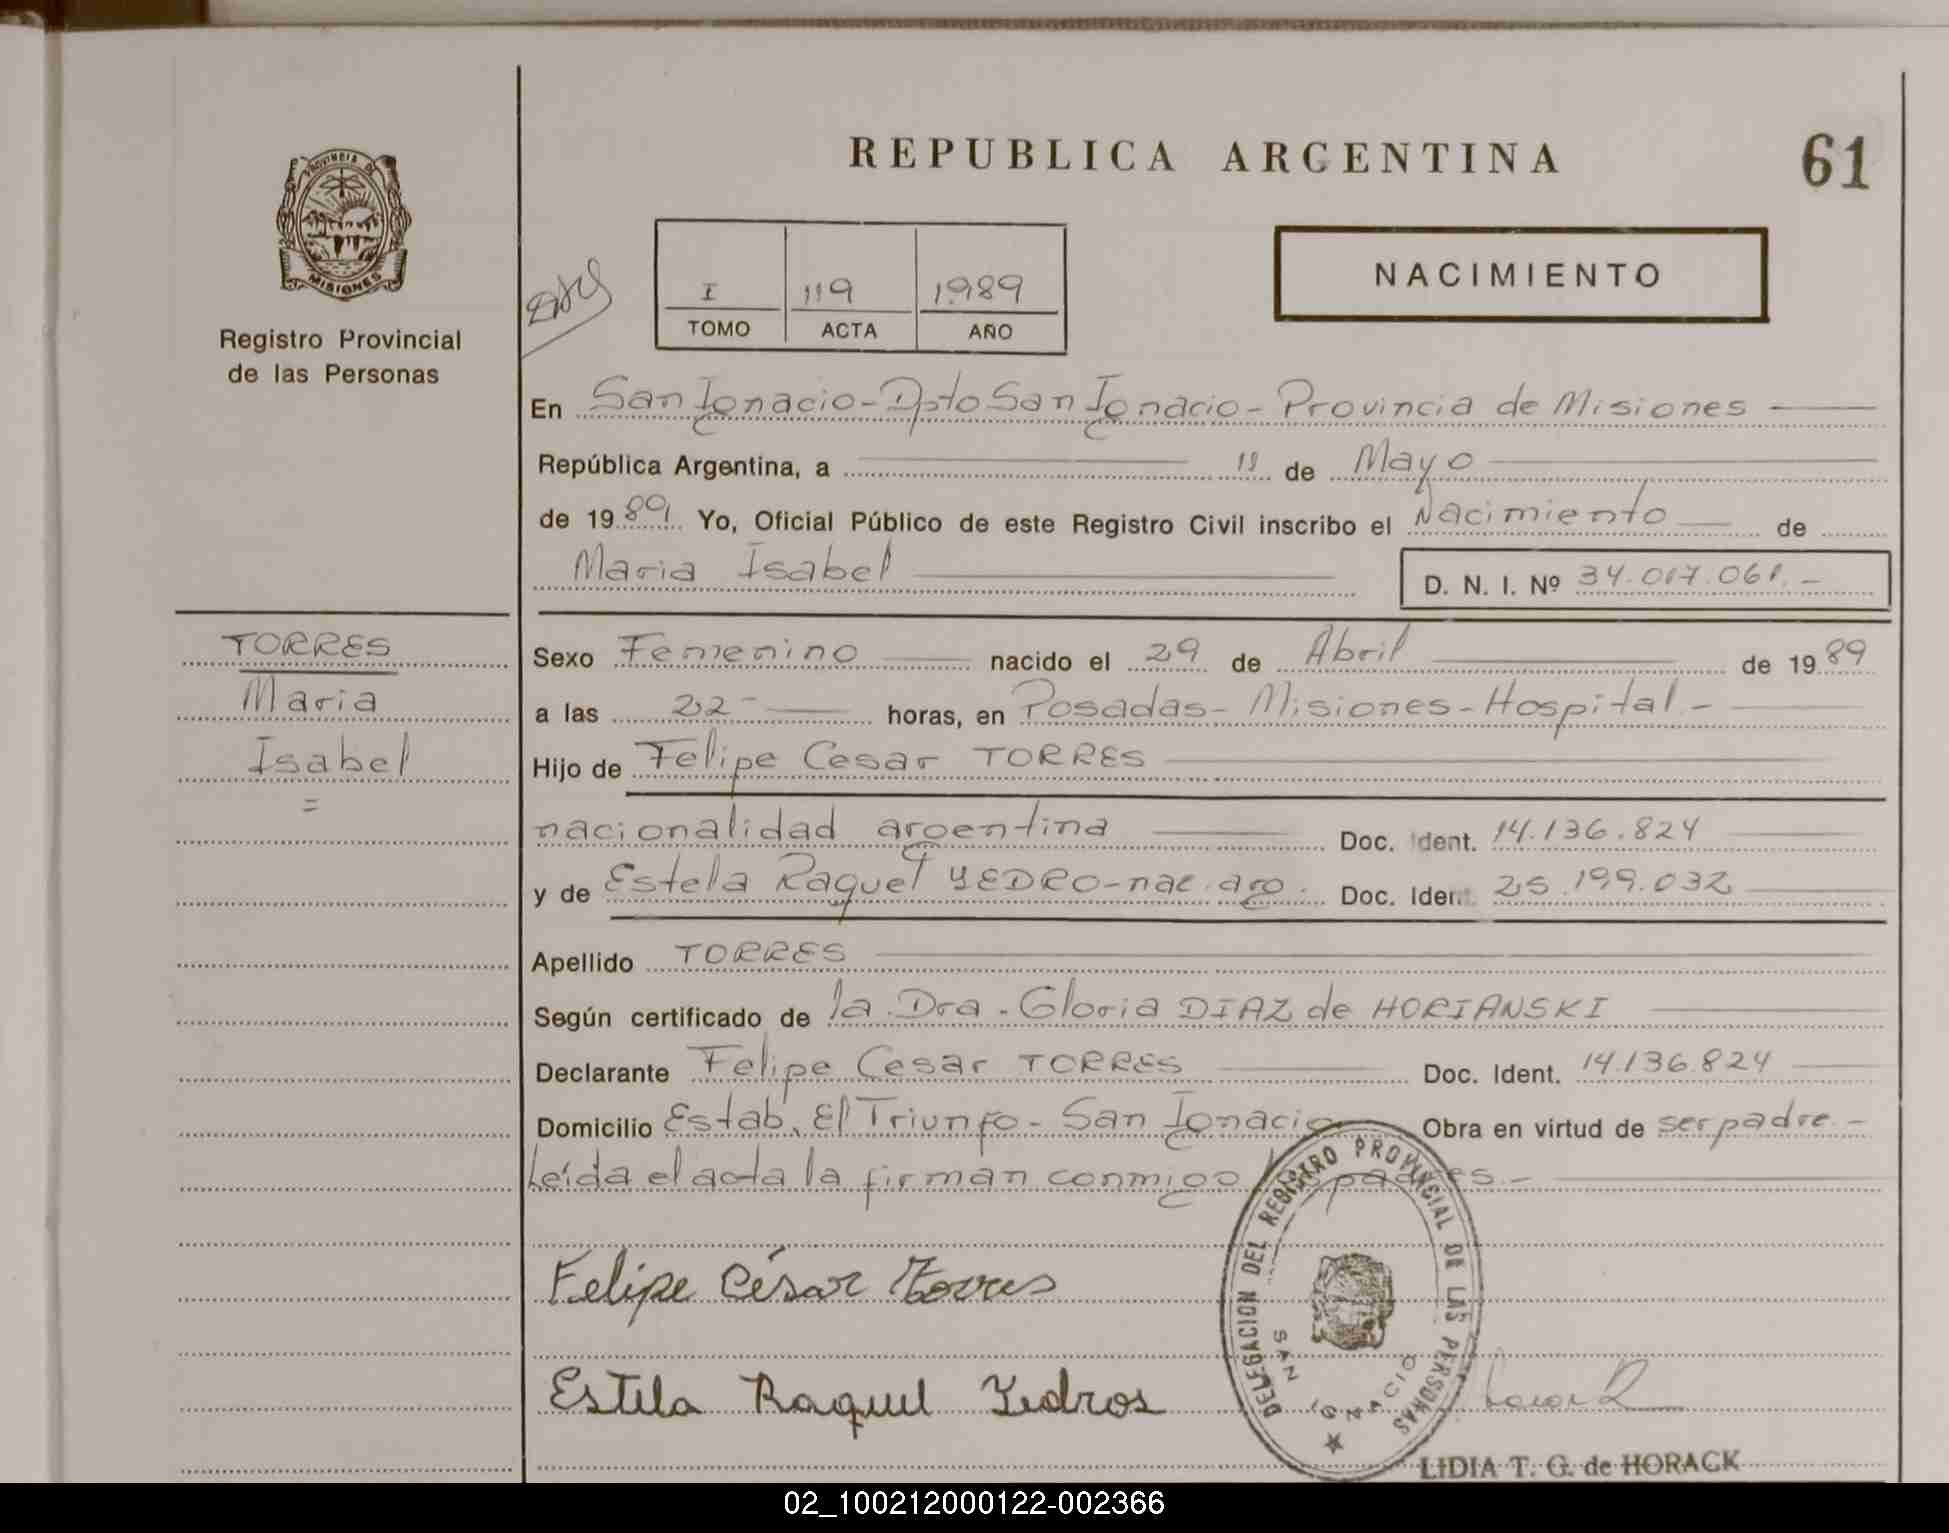 REPUBLICA ARGENTINA
61
PROVINCIA DE
MISIONES
Registro Provincial
de las Personas
I 119 1989
TOMO ACTA AÑO
NACIMIENTO
En San Ignacio - Dpto San Ignacio - Provincia de Misiones
República Argentina, a 11 de Mayo
de 1989 Yo, Oficial Público de este Registro Civil inscribo el Nacimiento de
Maria Isabel D. N. I. Nº 34.017.061.-
TORRES
Maria
Isabel
=
Sexo Femenino nacido el 29 de Abril de 1989
a las 22- horas, en Posadas - Misiones - Hospital.-
Hijo de Felipe Cesar TORRES
nacionalidad argentina Doc. Ident. 14.136.824
y de Estela Raquel YEDRO - nac. arg. Doc. Ident. 25.199.032
Apellido TORRES
Según certificado de la Dra. Gloria DIAZ de HORIANSKI
Declarante Felipe Cesar TORRES Doc. Ident. 14.136.824
Domicilio Estab. El Triunfo - San Ignacio Obra en virtud de ser padre.-
Leída el acta la firman conmigo los padres.-
Felipe César Torres
Estela Raquel Yedros
DELEGACION DEL REGISTRO PROVINCIAL DE LAS PERSONAS
SAN IGNACIO
LIDIA T. G. de HORACK
02_100212000122-002366